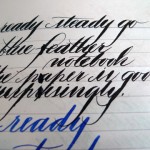 ready steady go
blue feather
notebook
the paper is good
surprisingly.
ready